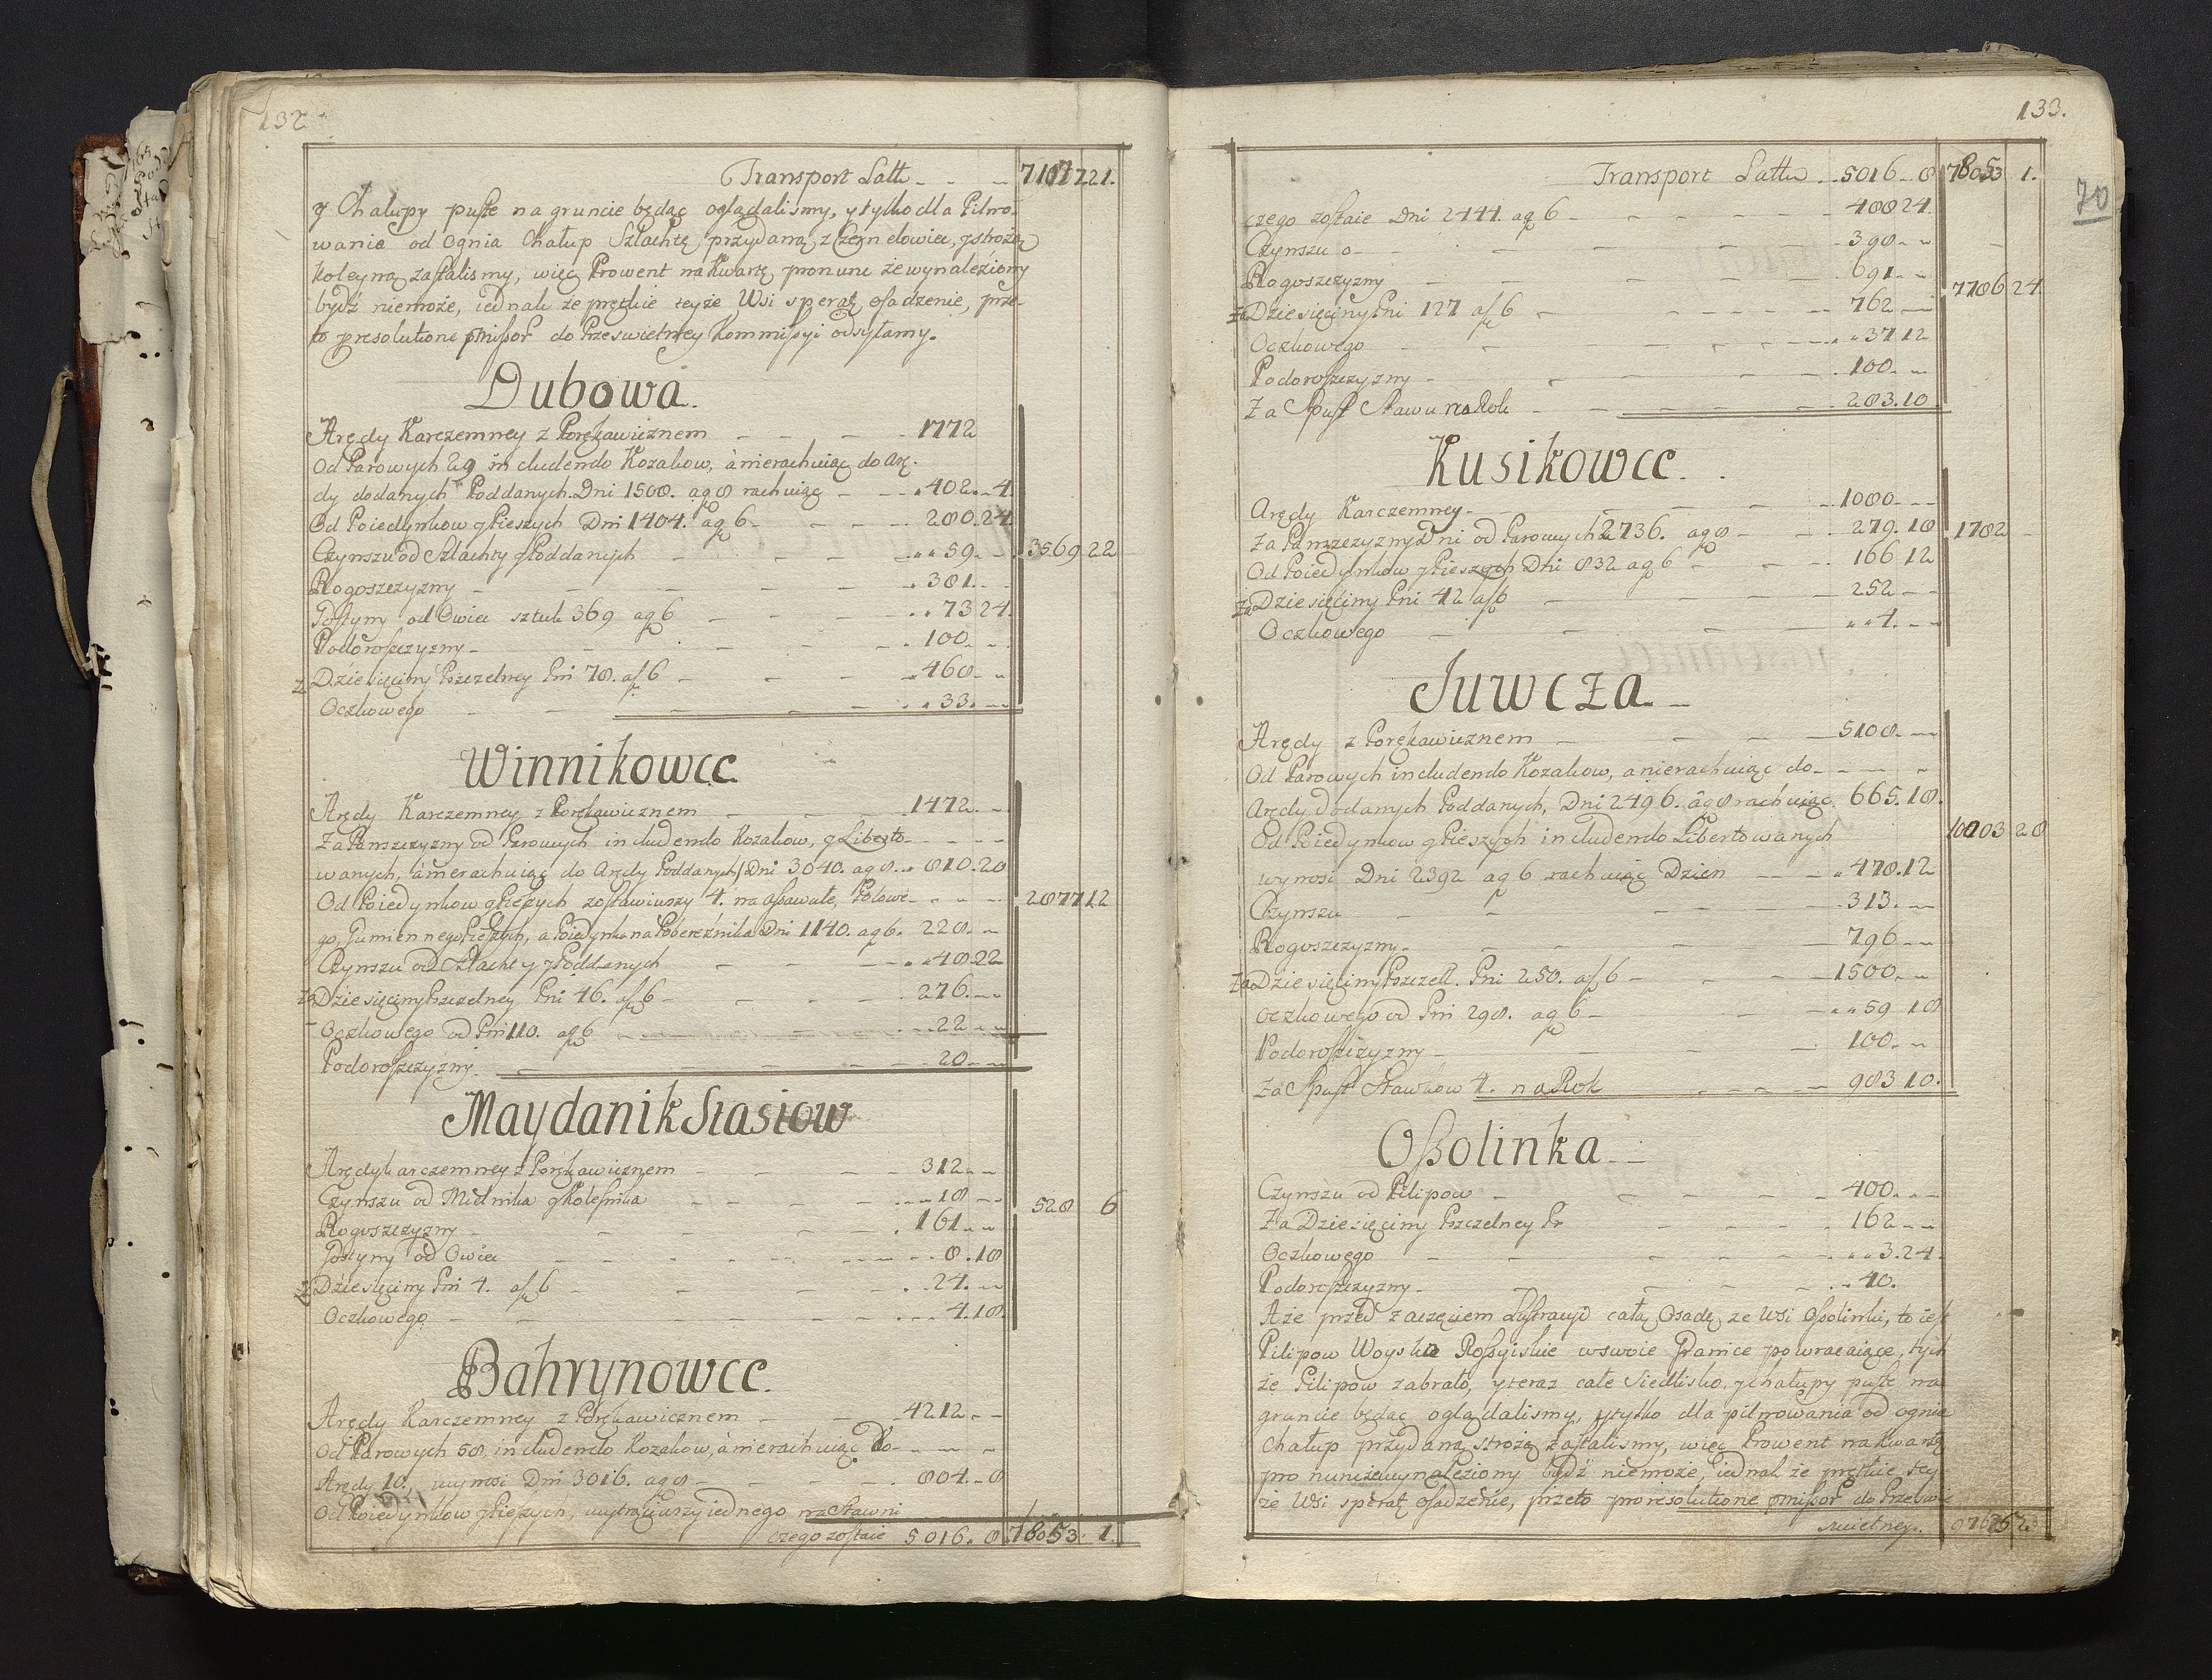 132
Transport Latt. - - - 71077 21.
y Chałupy puste na gruncie będąc oglądalismy, y tylko dla Pilno-
wania od Ognia Chałup Szlachtę przydaną z Czendowiec, y strożą
koleyną zastalismy, więc Prowent na Kwartę pro nunc że wynaleziony
bydź niemoże, iednak że prętkie teyże Wsi sperat osadzenie, prze-
to pro resolutione do Prześwietney Kommissyi odsyłamy.
Dubowa.
Arędy Karczemney z Porękawicznem - - - 1772
Od Parowych 29 includendo Kozakow, a nierachuiąc do Arę-
dy dodanych Poddanych. Dni 1508. a g 8 rachuiąc - - 402. 4.
Od Poiedynkow y Pieszych Dni 1404. a g 6 - - - 280. 24.
Czynszu od Szlachty y Poddanych - - - 59. - 3569 22
Rogoszczyzny - - - 381.
Postyny od Owiec sztuk 369 a g 6 - - - 73 24.
Podoroszczyzny - - - 100.
Za Dziesięciny Pszczelney Pni 78. a f 6 - - - 468.
Oczkowego - - - 33.
Winnikowce
Arędy Karczemney z Porękawicznem - - - 1472.
Za Panszczyzny od Parowych includendo Kozakow, y Liberto- - -
wanych, a nierachuiąc do Arędy Poddanych / Dni 3040. a g 8. 810. 20
Od Poiedynkow y Pieszych zostawiwszy 4. na Assawułe, Polowe- - - 2877 12
go, Gumiennego Pieszych, a Poiedynka na Pobereźnika Dni 1140. a g 6. 228.
Czynszu od Szlachty y Poddanych - - - 48 22
Za Dziesięciny Pszczelney Pni 46. a f 6 - - - 276.
Oczkowego od Pni 110. a g 6 - - - 22
Podoroszczyzny. - - - 20
Maydanik Stasiow
Arędy karczemney z Porękawicznem - - - 312
Czynszu od Mielnika y Kolesnika - - - 18 - 528 6
Rogoszczyzny - - - 161
Postyny od Owiec - - - 8. 18
Za Dziesięciny Pni 4. a f 6 - - - 24.
Oczkowego - - - 4. 18.
Bahrynowce.
Arędy Karczemney z Porękawicznem - - - 4212
Od Parowych 58, includendo Kozakow, a nierachuiąc do- - -
Arędy 10, wynosi Dni 3016. a g 8 - - - 804. 8
Od Poiedynkow y Pieszych, wytrąciwszy iednego na Stawni
czego zostaie 5016. 8 78053. 1.
133.
70
Transport Latt. 5016 - 8 78053 1.
czego zostaie Dni 2444. a g 6 - - - 488 24.
Czynszu - - - 398
Rogoszczyzny - - - 691 - 7786 24.
Za Dziesięciny Pni 127 a f 6 - - - 762
Oczkowego - - - 37 12
Podoroszczyzny - - - 100.
Za Spust Stawu na Rok - - - 283. 10
Kusikowce.
Arędy Karczemney - - - 1080
Za Panszczyzny Dni od Parowych 2736. a g 8 - - 279. 18 1782
Od Poiedynkow y Pieszych Dni 832 a g 6 - - 166 12
Za Dziesięciny Pni 42 a f 6 - - - 252
Oczkowego - - - 4.
Juwcza
Arędy z Porękawicznem - - - 5108.
Od Parowych includendo Kozakow, a nierachuiąc do- - -
Arędy dodanych Poddanych, Dni 2496. a g 8 rachuiąc 665. 18.
Od Poiedynkow y Pieszych includendo Libertowanych 10003 28
wynosi Dni 2392 a g 6 rachuiąc Dzien - - 478. 12
Czynszu - - - 313.
Rogoszczyzny - - - 796
Za Dziesięciny Pszczell. Pni 250. a f 6 - - - 1500
Oczkowego od Pni 298. a g 6 - - - 59 18
Podoroszczyzny - - - 100
Za Spust Stawkow 4. na Rok - - - 983 10.
Ossolinka
Czynszu od Pilipow - - - 400.
Za Dziesięciny Pszczelney Pr - - - 162
Oczkowego - - - 3. 24.
Podoroszczyzny - - - 40.
A że przed zaczęciem Lustracyi całą Osadę ze Wsi Ossolinki, to iest
Pilipow Woysko Rossyiskie w swoie Granice powracaiące, tych
że Pilipow zabrało, y teraz całe Siedlisko, y chałupy puste na
gruncie będąc oglądalismy, y tylko dla pilnowania od ognia
Chałup przydaną strożą zastalismy, więc Prowent na Kwartę
pro nunc że wynaleziony bydź niemoże, iednak że prętkie tey-
że Wsi sperat osadzenie, przeto pro resolutione do Przeswie
swietney.